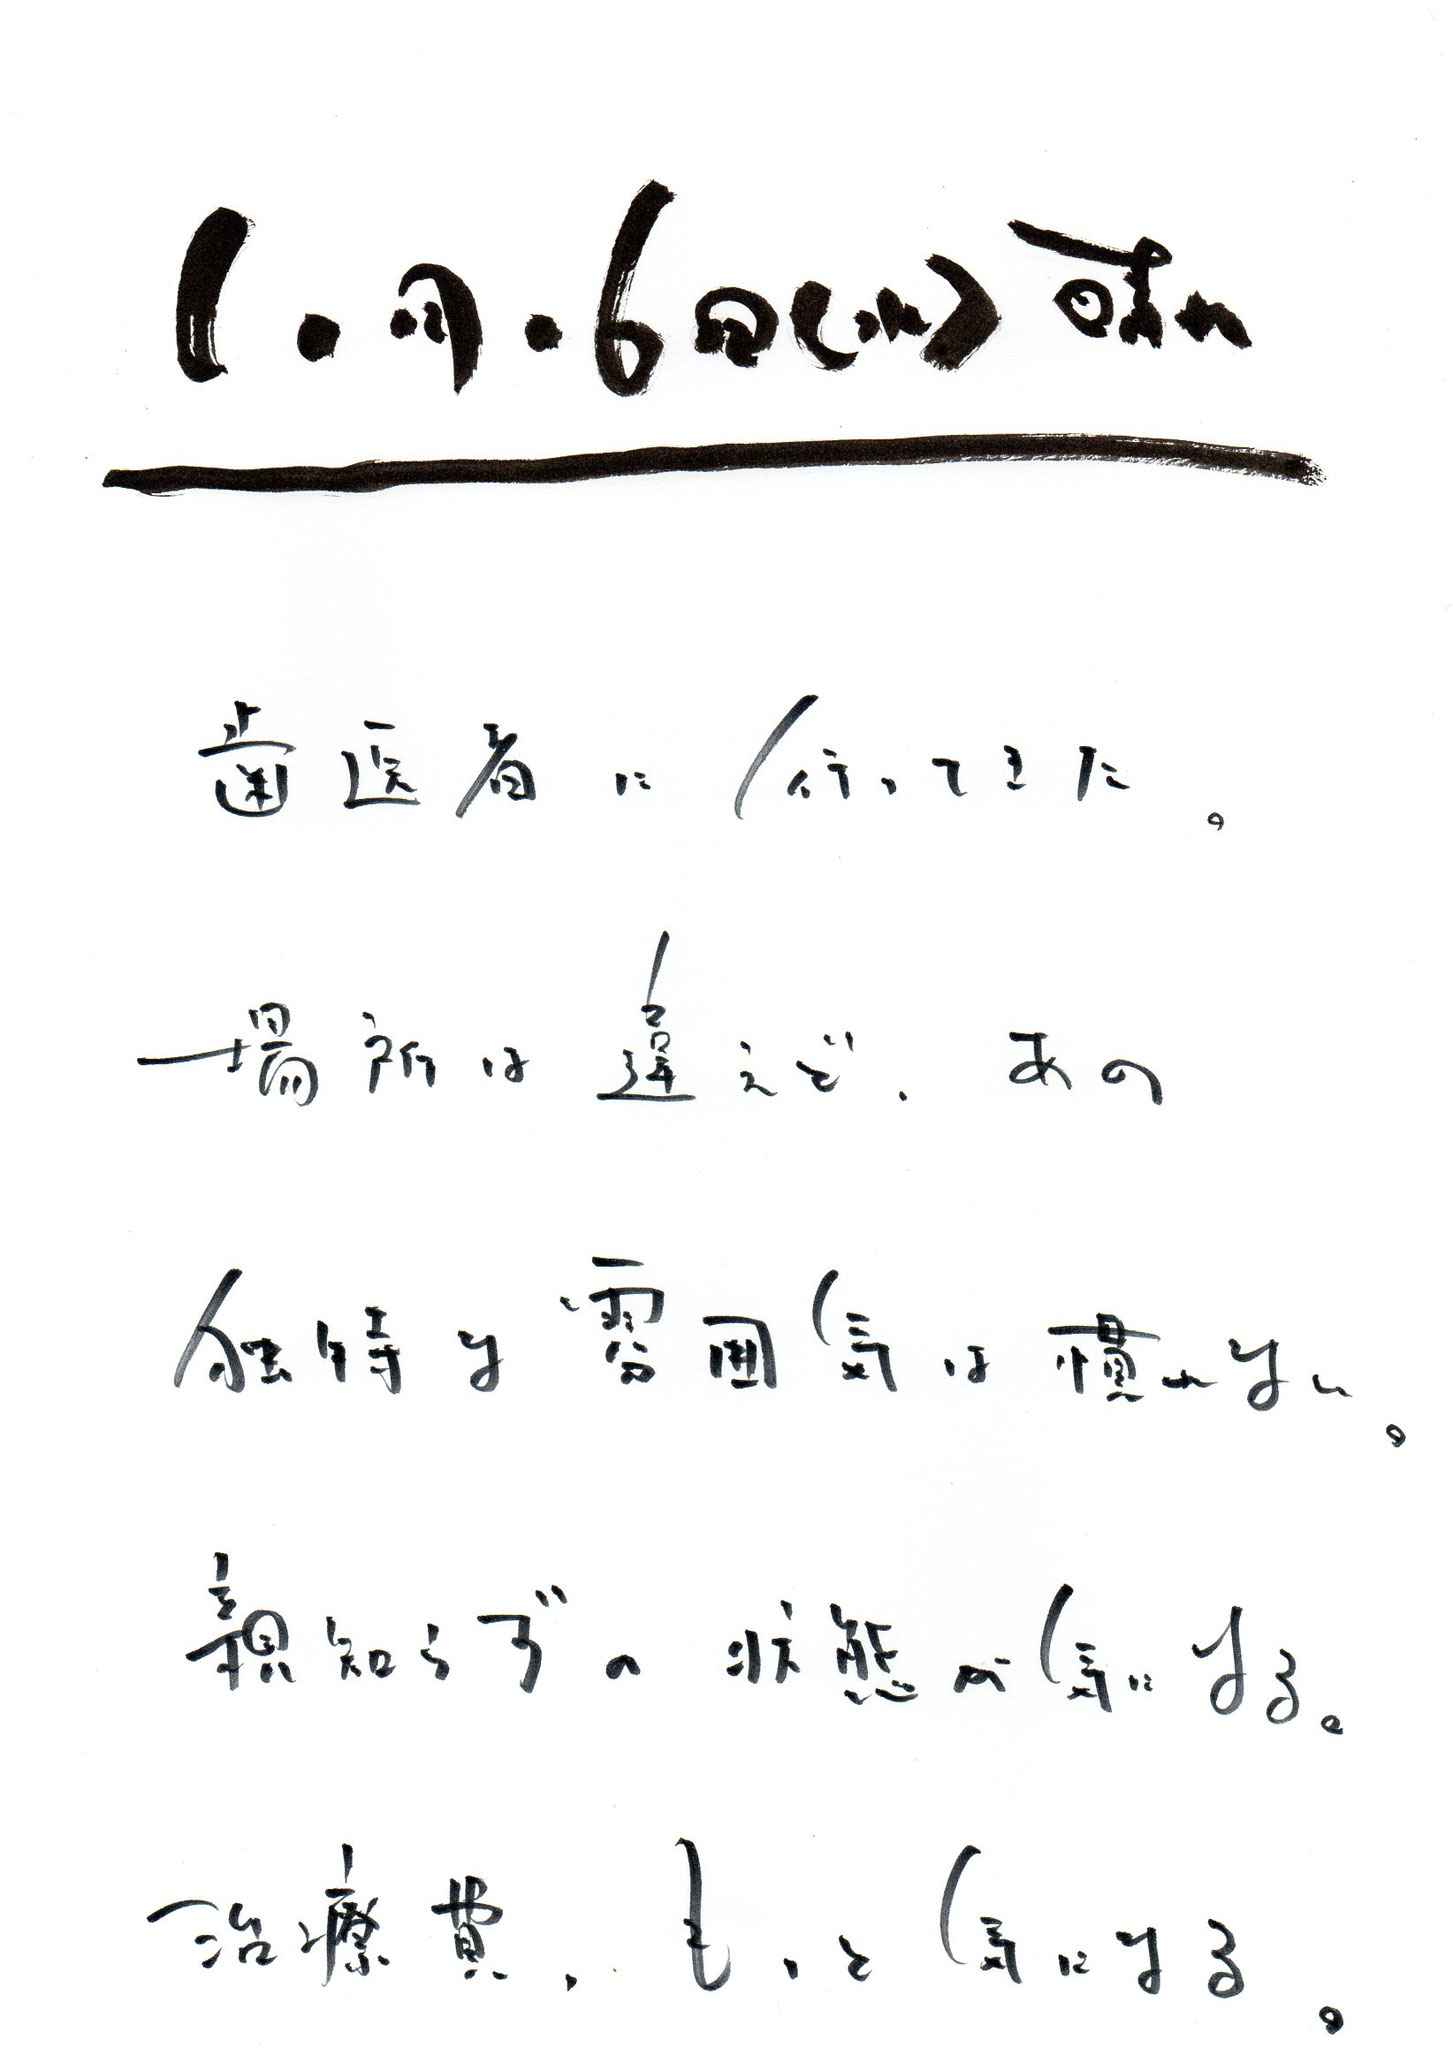 1・月・6日(水)晴れ
歯医者に行ってきた。
場所は違えど、あの
独特な雰囲気は慣れない。
親知らずの状態が気になる。
治療費、もっと気になる。